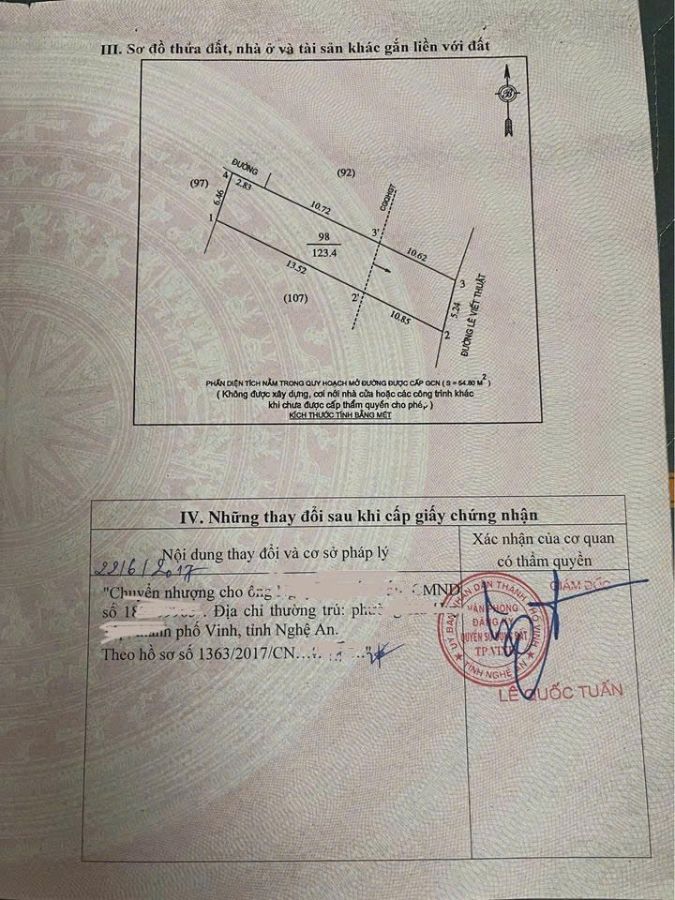 III. Sơ đồ thửa đất, nhà ở và tài sản khác gắn liền với đất
B
ĐƯỜNG
(92)
(97)
4
2.83
6.46
1
10.72
CGQHĐT
3'
98
123.4
10.62
13.52
3
(107)
2'
10.85
5.24
2
ĐƯỜNG LÊ VIẾT THUẬT
PHẦN DIỆN TÍCH NẰM TRONG QUY HOẠCH MỞ ĐƯỜNG ĐƯỢC CẤP GCN ( S = 54.80 M2 )
( Không được xây dựng, cơi nới nhà cửa hoặc các công trình khác
khi chưa được cấp thẩm quyền cho phép. )
KÍCH THƯỚC TÍNH BẰNG MÉT
IV. Những thay đổi sau khi cấp giấy chứng nhận
Nội dung thay đổi và cơ sở pháp lý
Xác nhận của cơ quan
có thẩm quyền
22/6/2017
"Chuyển nhượng cho ông CMND
số 18 Địa chỉ thường trú:
thành phố Vinh, tỉnh Nghệ An.
Theo hồ sơ số 1363/2017/CN
GIÁM ĐỐC
ỦY BAN NHÂN DÂN THÀNH PHỐ VINH
VĂN PHÒNG
ĐĂNG KÝ
QUYỀN SỬ DỤNG ĐẤT
TP VINH
TỈNH NGHỆ AN
LÊ QUỐC TUẤN